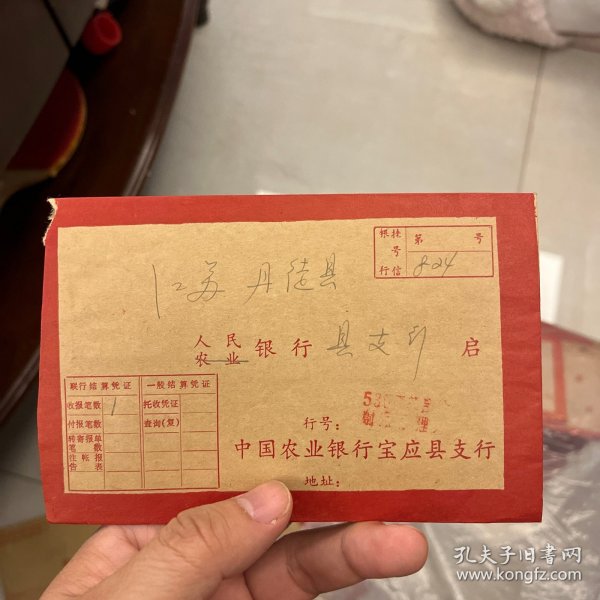 银行 挂号信
第 号
824
江苏 丹徒县
人民
农业 银行 县支行 启
联行结算凭证 一般结算凭证
收报笔数 1 托收凭证
付报笔数 查询(复)
转寄报单笔数
往帐报告表
行号:
中国农业银行宝应县支行
地址:
孔夫子旧书网
www.kongfz.com